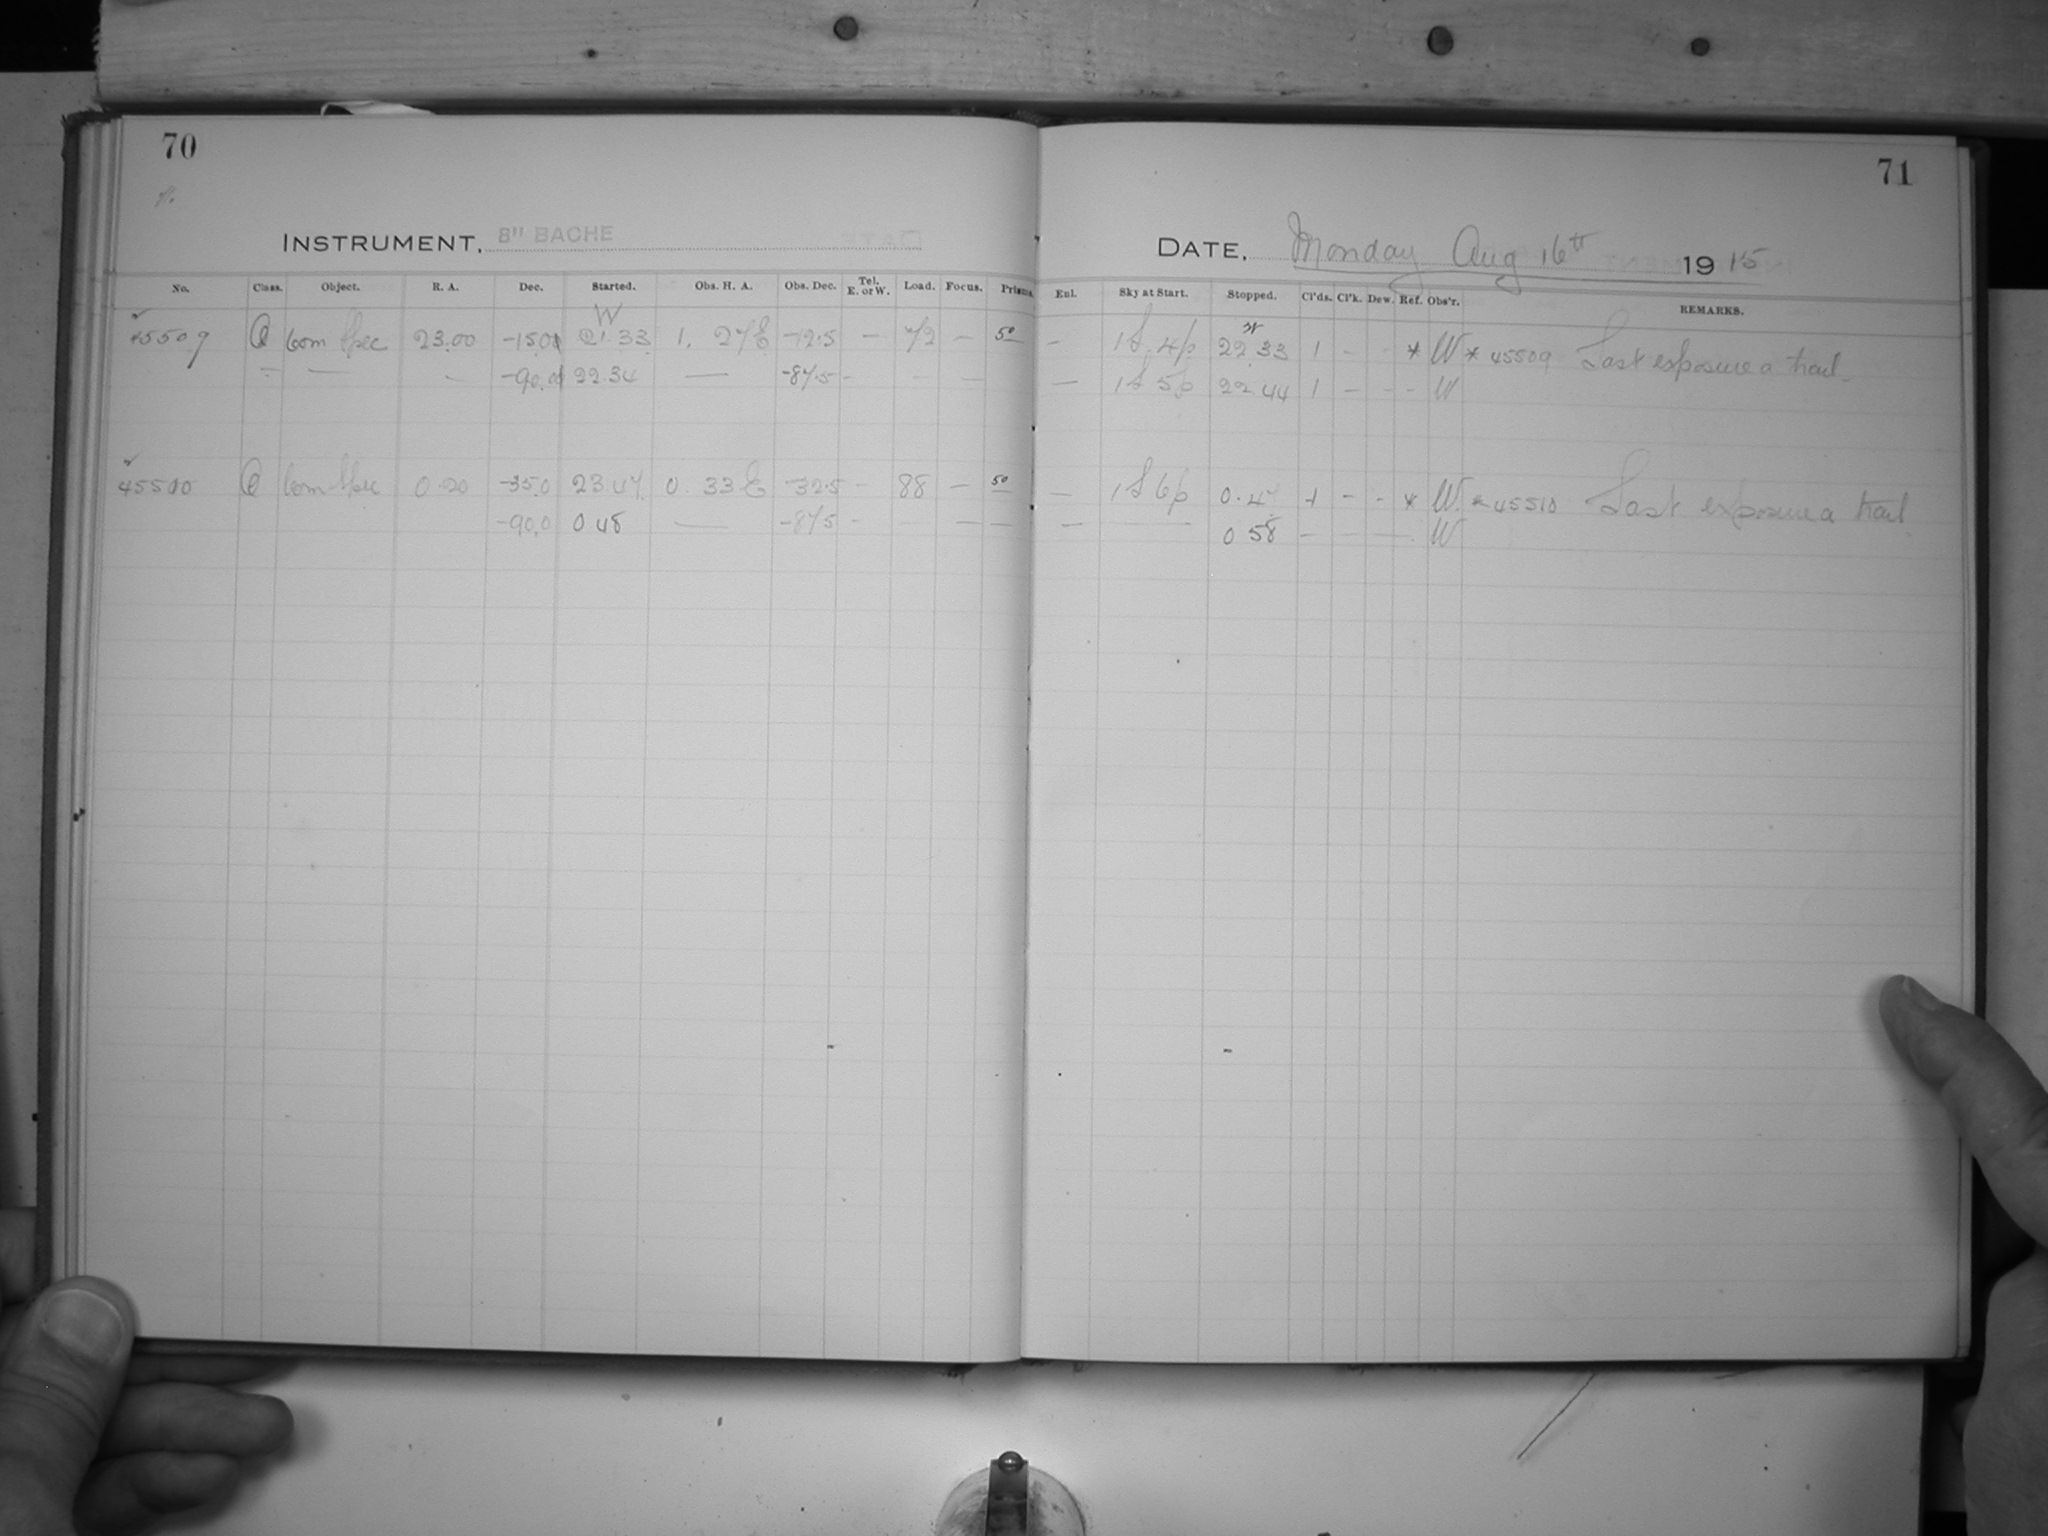 70
INSTRUMENT, 8" BACHE
No. Class. Object. R. A. Dec. Started. Obs. H. A. Obs. Dec. Tel. E. or W. Load. Focus. Prisms.
W
45509 Q Com Spec 23.00 -15.0 21.33 1. 27 E -12.5 — — 50
— — - -90.0 22.34 — -87.5 - — —
45510 Q Com Spec 0.20 -35.0 23 47 0. 33 E -32.5 - 88 — 50
-90.0 0 48 — -87.5 - — — —
71
DATE, Monday Aug 16th 1915
Enl. Sky at Start. Stopped. Cl'ds. Cl'k. Dew. Ref. Obs'r. REMARKS.
W
- 1S 4p 22 33 1 - - * W * 45509 Last exposure a trail
— 1S 5p 22 44 1 - - - W
— 1S 6p 0.47 1 - - * W. * 45510 Last exposure a trail
— — 0 58 — — — W